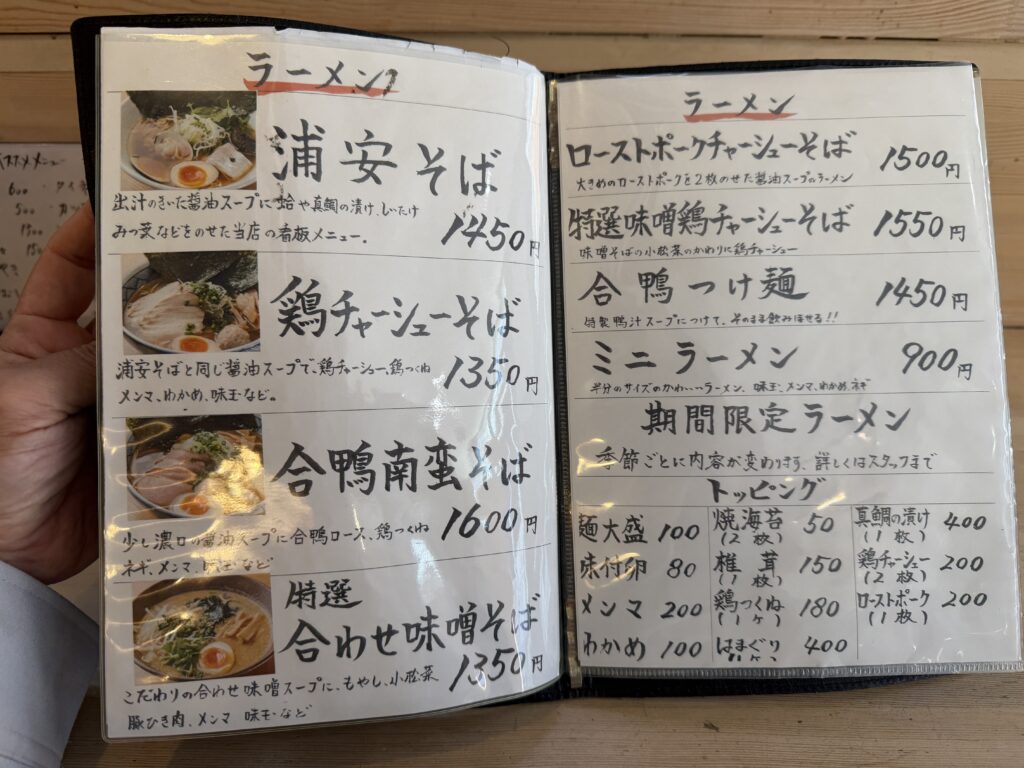 ラーメン
浦安そば
出汁のきいた醤油スープに蛤や真鯛の漬け、しいたけ
みつ葉などをのせた当店の看板メニュー。
1450円
鶏チャーシューそば
浦安そばと同じ醤油スープで、鶏チャーシュー、鶏つくね
メンマ、わかめ、味玉など。
1350円
合鴨南蛮そば
少し濃口の醤油スープに合鴨ロース、鶏つくね
ネギ、メンマ、味玉など
1600円
特選
合わせ味噌そば
1350円
こだわりの合わせ味噌スープに、もやし、小松菜
豚ひき肉、メンマ 味玉など
ラーメン
ローストポークチャーシューそば 1500円
大きめのローストポークを2枚のせた醤油スープのラーメン
特選味噌鶏チャーシューそば 1550円
味噌そばの小松菜のかわりに鶏チャーシュー
合鴨つけ麺 1450円
特製鴨汁スープにつけて、そのまま飲みほせる!!
ミニラーメン 900円
半分のサイズのかわいいラーメン、味玉、メンマ、わかめ、ネギ
期間限定ラーメン
季節ごとに内容が変わります、詳しくはスタッフまで
トッピング
麺大盛 100
味付卵 80
メンマ 200
わかめ 100
焼海苔 50
(2枚)
椎茸 150
(1枚)
鶏つくね 180
(1ヶ)
はまぐり 400
真鯛の漬け 400
(1枚)
鶏チャーシュー 200
(2枚)
ローストポーク 200
(1枚)
メニュー
600
500
1500